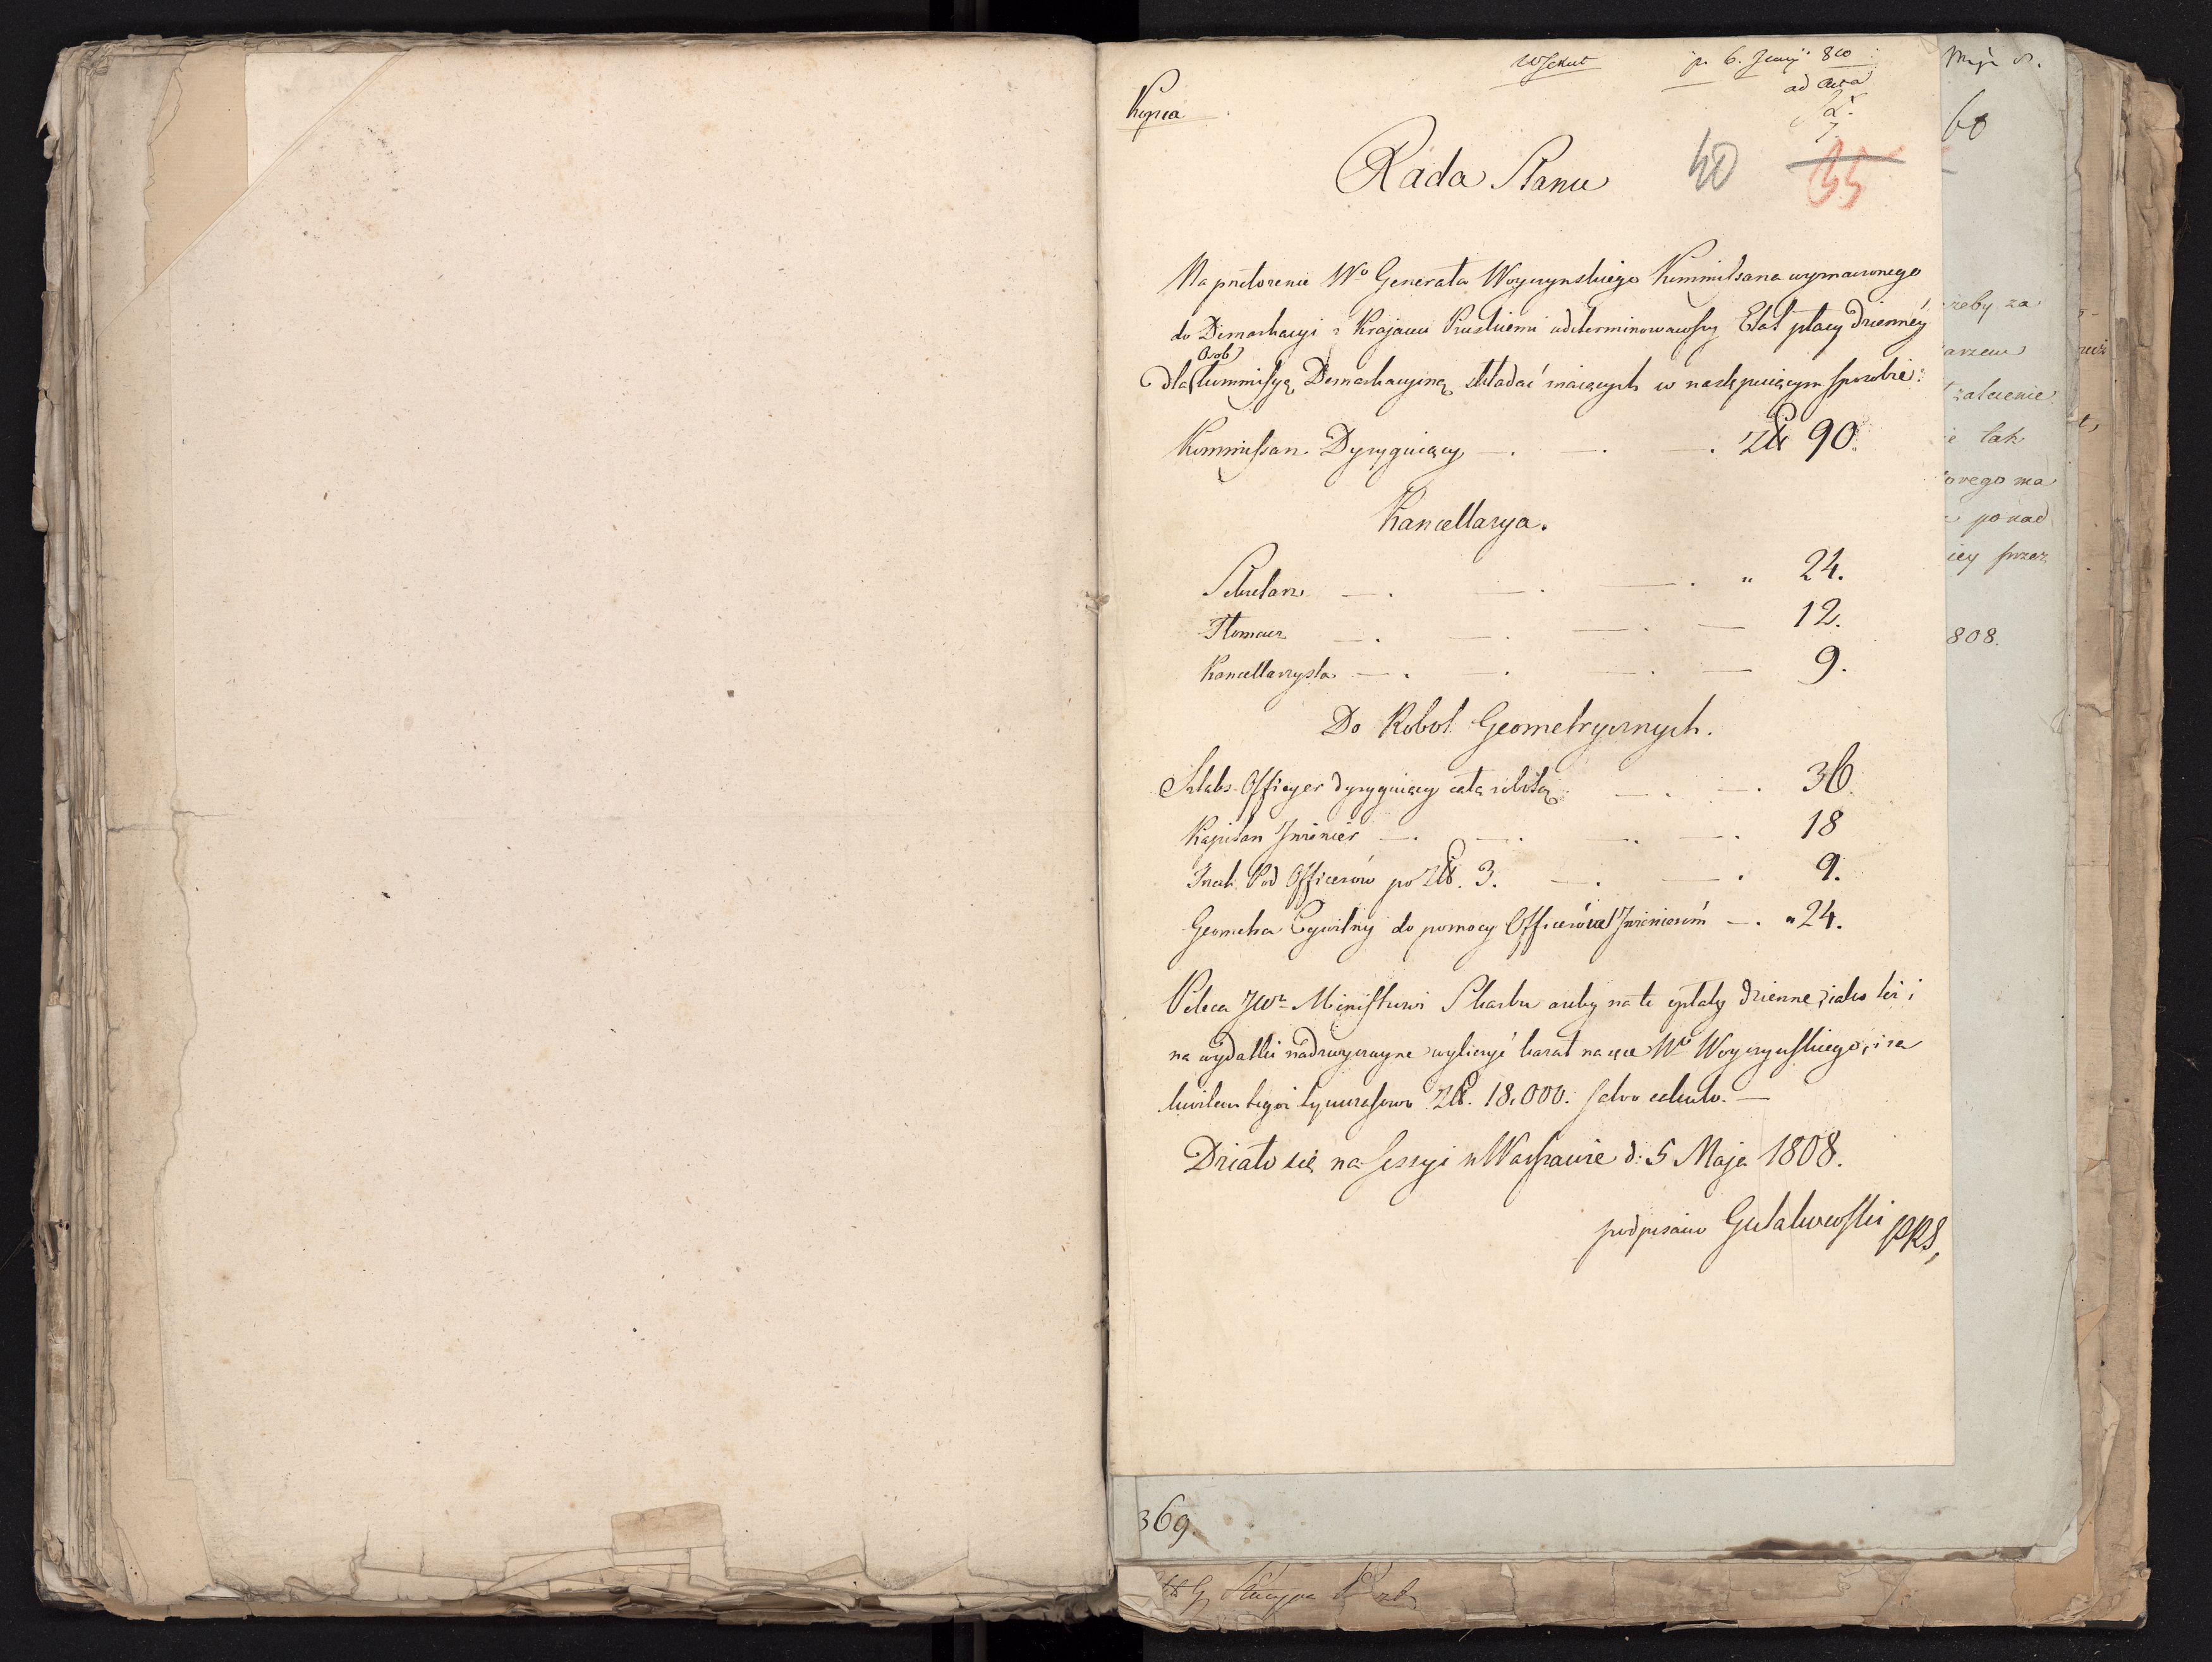 Kopia
p. 6. Junij 810
ad acta
Rada Stanu
40
35
Na przełożenie Wo Generała Woyczynskiego Kommissarza wyznaczonego
do Demarkacyi z Krajami Pruskiemi zdeterminowawszy Etat płacy dzienney
Osob
dla Kommissyą Demarkacyiną składać maiących w następuiącym sposobie:
Kommissarz Dyryguiący — . — . — . Zł 90.
Kancellarya.
Sekretarz — . — . — . " 24.
Tłomacz — . — . — . — 12.
Kancellarzysta — . — . — . — 9.
Do Robot Geometrycznych.
Sztabs-Officyer dyryguiący całą robotą — . — . 36.
Kapitan Inzenier — . — . — . — . 18
Trzech Pod Officerów po Zł. 3. — . — . 9.
Geometra Cywilny do pomocy Officerów Inzenierów — . " 24.
Poleca JWu Ministrowi Skarbu aby na te opłaty dzienne, iako też i
na wydatki nadzwyczayne wyliczyć kazał na ręce Wo Woyczynskiego, i za
kwitem tegoż tymczasowo Zł. 18,000. salvo calculo. —
Działo się na Sessyi w Warszawie d: 5 Maja 1808.
podpisano Gutakowski PRS,
60
żeby za
zalecenie
tak
orego ma
ponad
iey przez
808.
369.